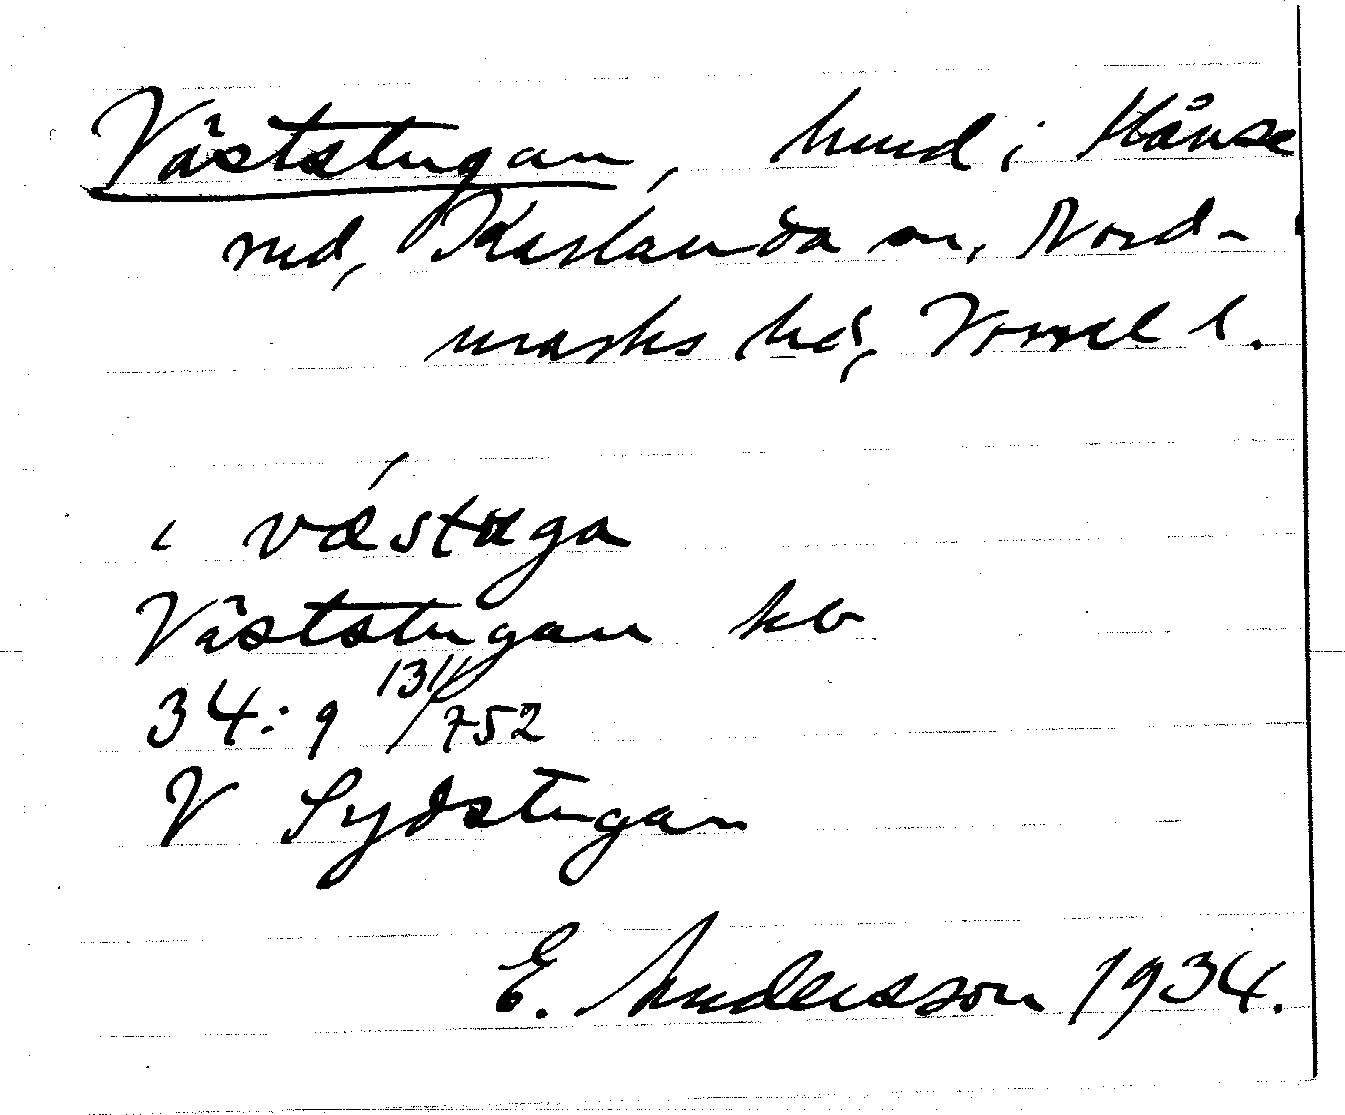 Väststugan, hmd i Hånse
rud, Karlanda sn, Nord-
marks hd, Vrml l.
i västuga
Väststugan kb
34:9 1311/752
V Sydstugan
E. Andersson 1934.